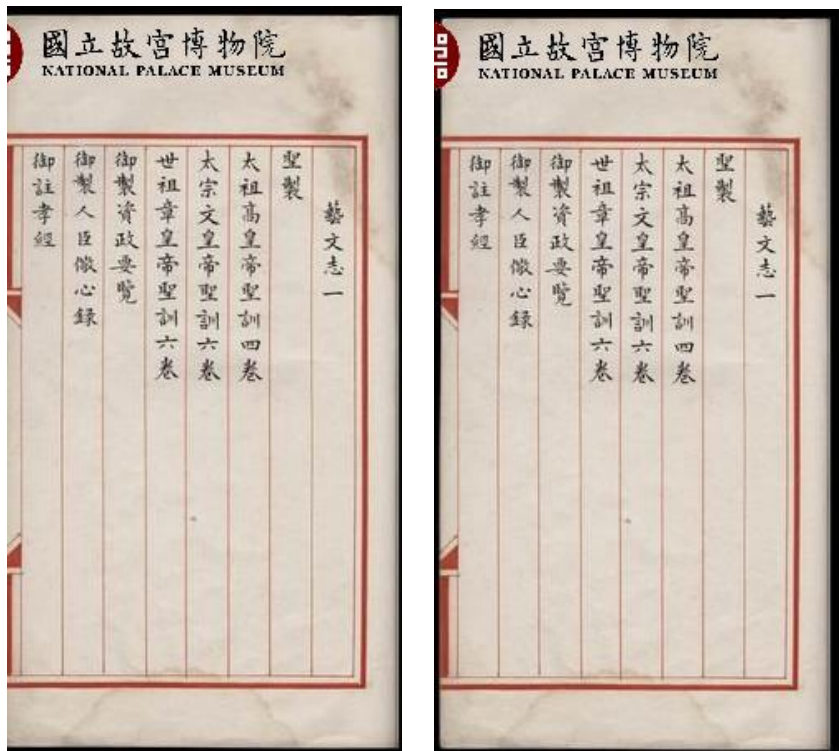 國立故宮博物院
NATIONAL PALACE MUSEUM
藝文志一
聖製
太祖高皇帝聖訓四卷
太宗文皇帝聖訓六卷
世祖章皇帝聖訓六卷
御製資政要覽
御製人臣儆心錄
御註孝經
國立故宮博物院
NATIONAL PALACE MUSEUM
藝文志一
聖製
太祖高皇帝聖訓四卷
太宗文皇帝聖訓六卷
世祖章皇帝聖訓六卷
御製資政要覽
御製人臣儆心錄
御註孝經